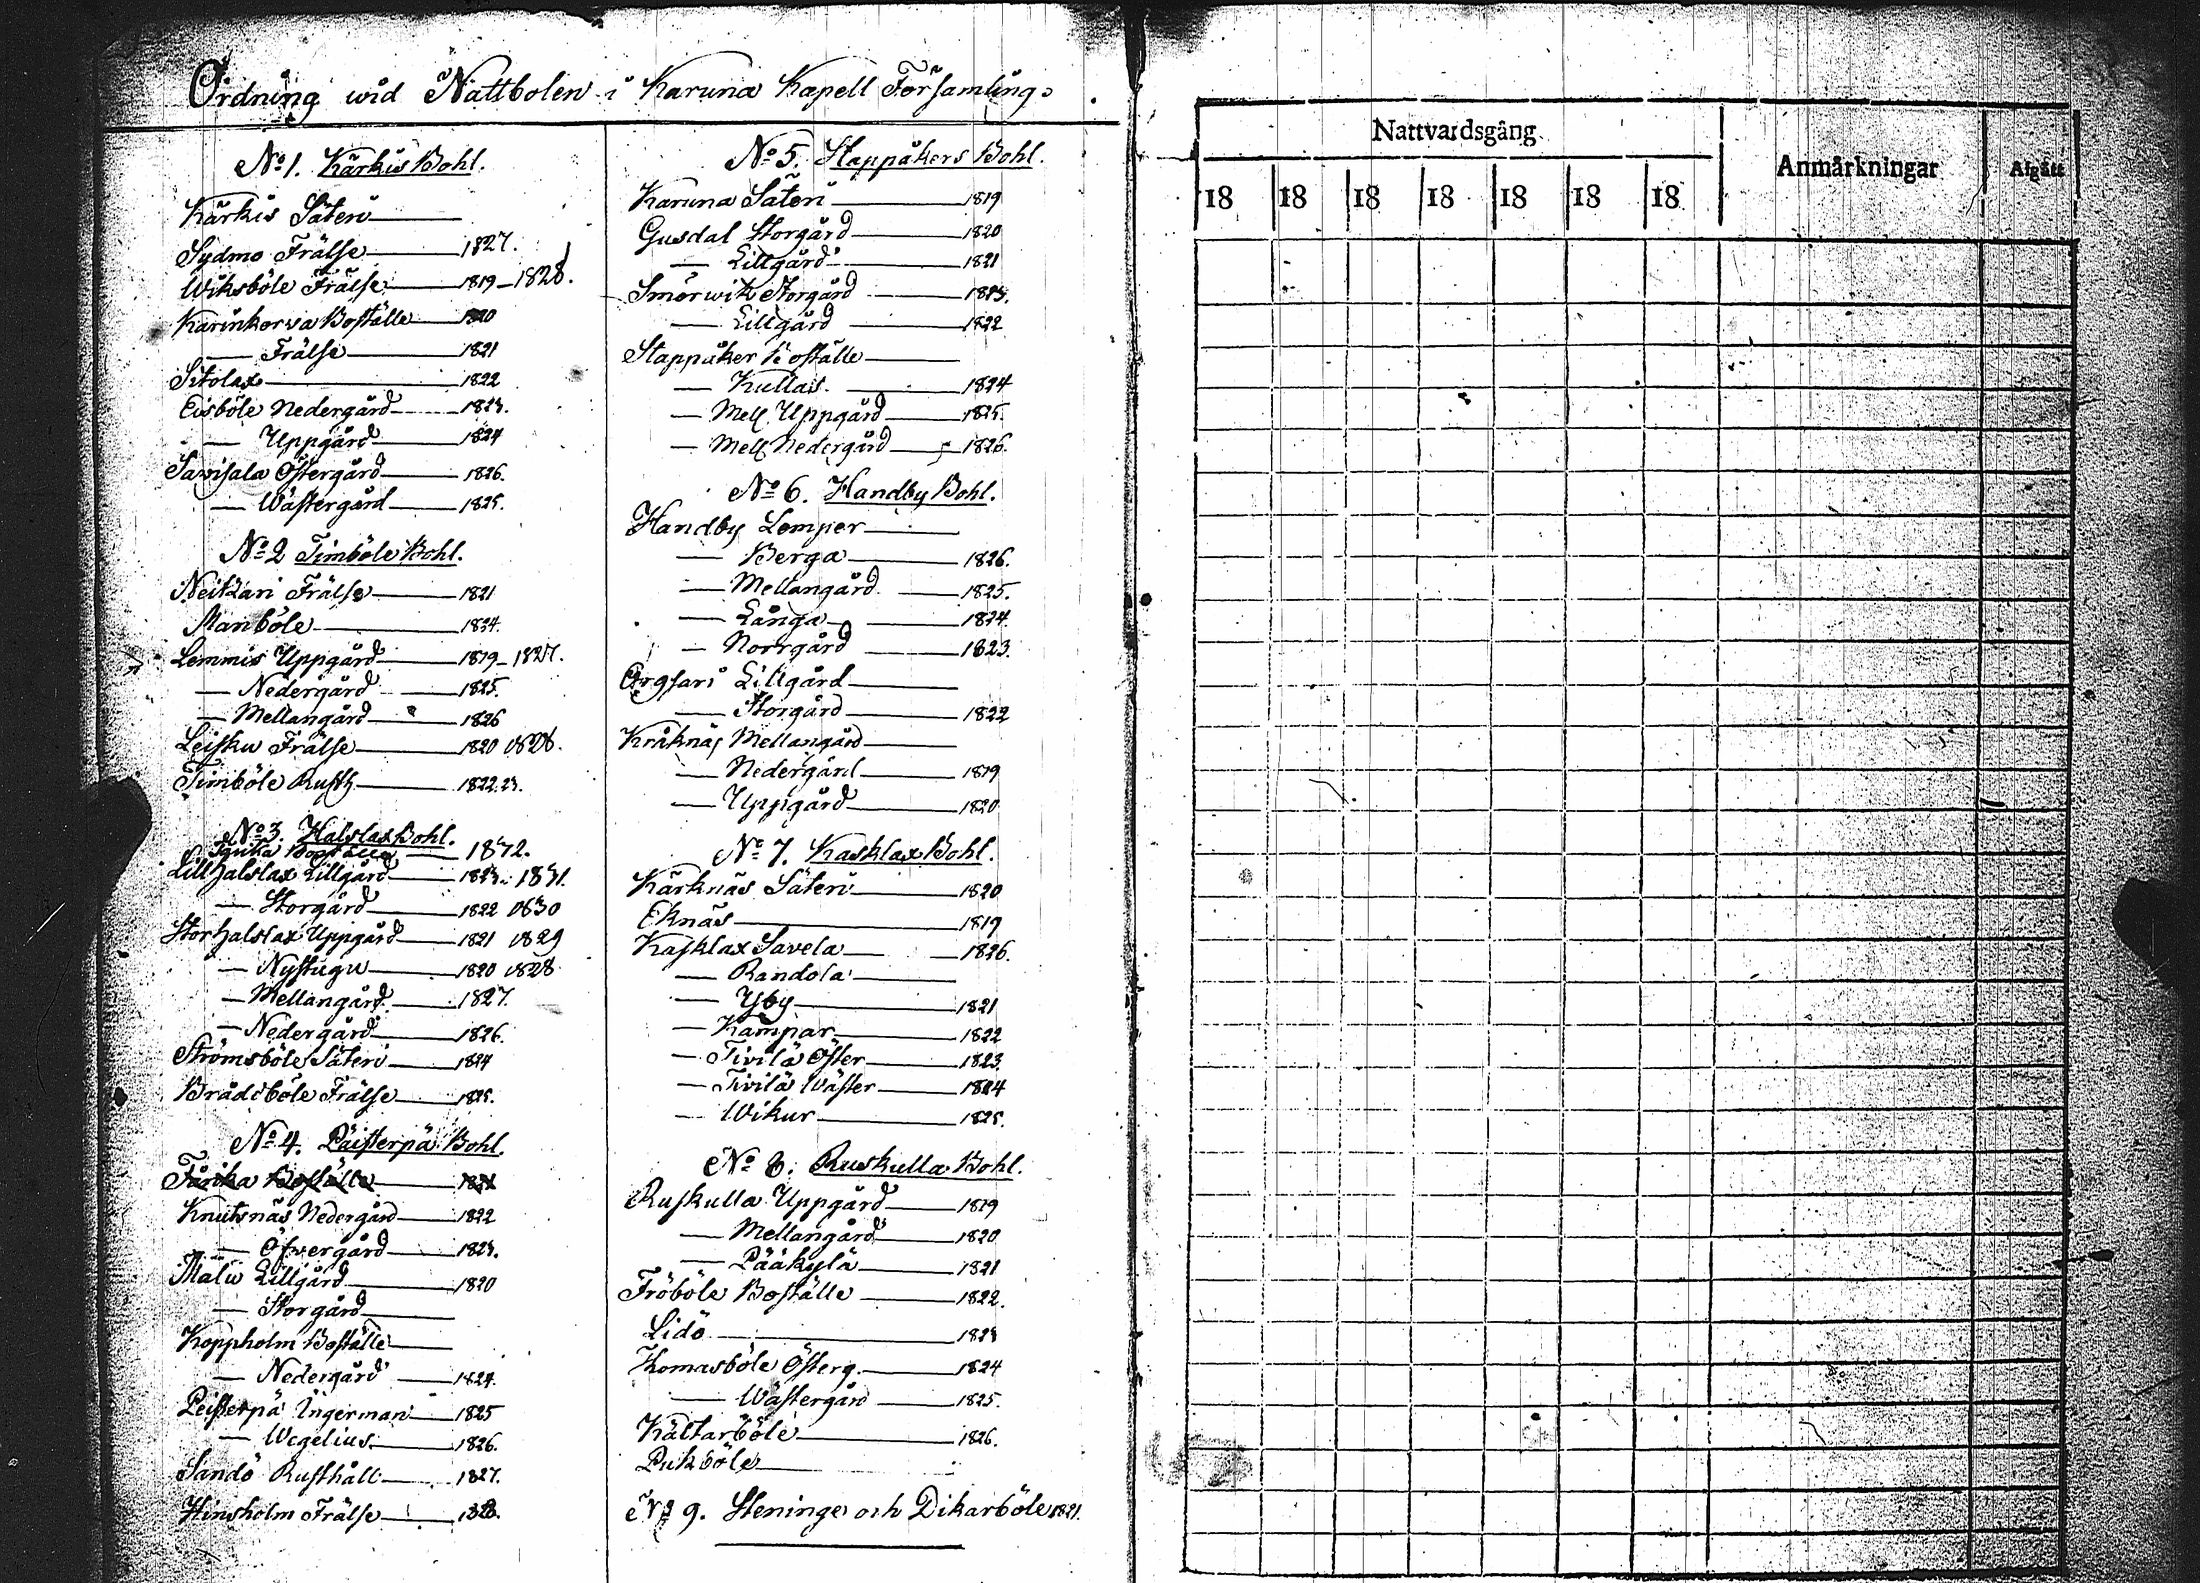 Ordning wid Nattbolen i Karuna Kapell Församling.
No 1. Kärkis Bohl.
Kärkis Säteri
Sydmo Frälse 1827.
Wiksböle Frälse 1819-1828.
Karinkorva Boställe 1820
— Frälse 1821
Sitolax 1822
Eisböle Nedergård 1823.
— Uppgård 1824
Savisala Östergård 1826.
— Wästergård 1825.
No 2 Timböle Bohl.
Neitkari Frälse 1821
Manböle 1824.
Lemmis Uppgård 1819-1827.
— Nedergård 1825.
— Mellangård 1826
Leisku Frälse 1820 1828.
Timböle Rusth 1822.23.
No 3. Halslax Bohl.
Boställe 1872.
Lillhalslax Lillgård 1823. 1831.
— Storgård 1822 1830
Storhalslax Uppgård 1821 1829
— Nystugu 1820 1828
— Mellangård 1827.
— Nedergård 1826.
Strömsböle Säteri 1824
Brådtböle Frälse 1825.
No 4. Päisterpä Bohl.
Farika Boställe 1821
Knutsnäs Nedergård 1822
— Öfvergård 1823.
Malu Lillgård 1820
— Storgård
Koppholm Boställe
— Nedergård 1824.
Peisterpä Ingerman 1825
— Wegelius 1826.
Sandö Rusthåll 1827.
Hinsholm Frälse 1828.
No 5. Stappåkers Bohl.
Karuna Säteri 1819
Gusdal Storgård 1820
— Lillgård 1821
Smörwik Storgård 1823.
— Lillgård 1822
Stappåker Boställe
— Kullas 1824
— Mell Uppgård 1825.
— Mell Nedergård 1826.
No 6. Handby Bohl.
Handby Lemper
— Berga 1826.
— Mellangård 1825.
— Långa 1824
— Norrgård 1823
Orgsari Lillgård
— Storgård 1822
Kråknäs Mellangård
— Nedergård 1819
— Uppgård 1820
No 7. Kasklax Bohl.
Kärknäs Säteri 1820
Eknäs 1819
Kasklax Savela 1826.
— Randola
— Yby 1821
— Kampar 1822
— Tivilä Öster 1823
— Tivilä Wäster 1824
— Wikur 1825.
No 8. Ruskulla Bohl.
Ruskulla Uppgård 1819
— Mellangård 1820
— Pääkylä 1821
Fröböle Boställe 1822.
Lidö 1823
Thomasböle Österg. 1824
— Wästergård 1825.
Kältarböle 1826.
Pukböle
No 9. Steninge och Dikarböle 1821.
Nattvardsgång
Anmärkningar
Afgått
18 18 18 18 18 18 18